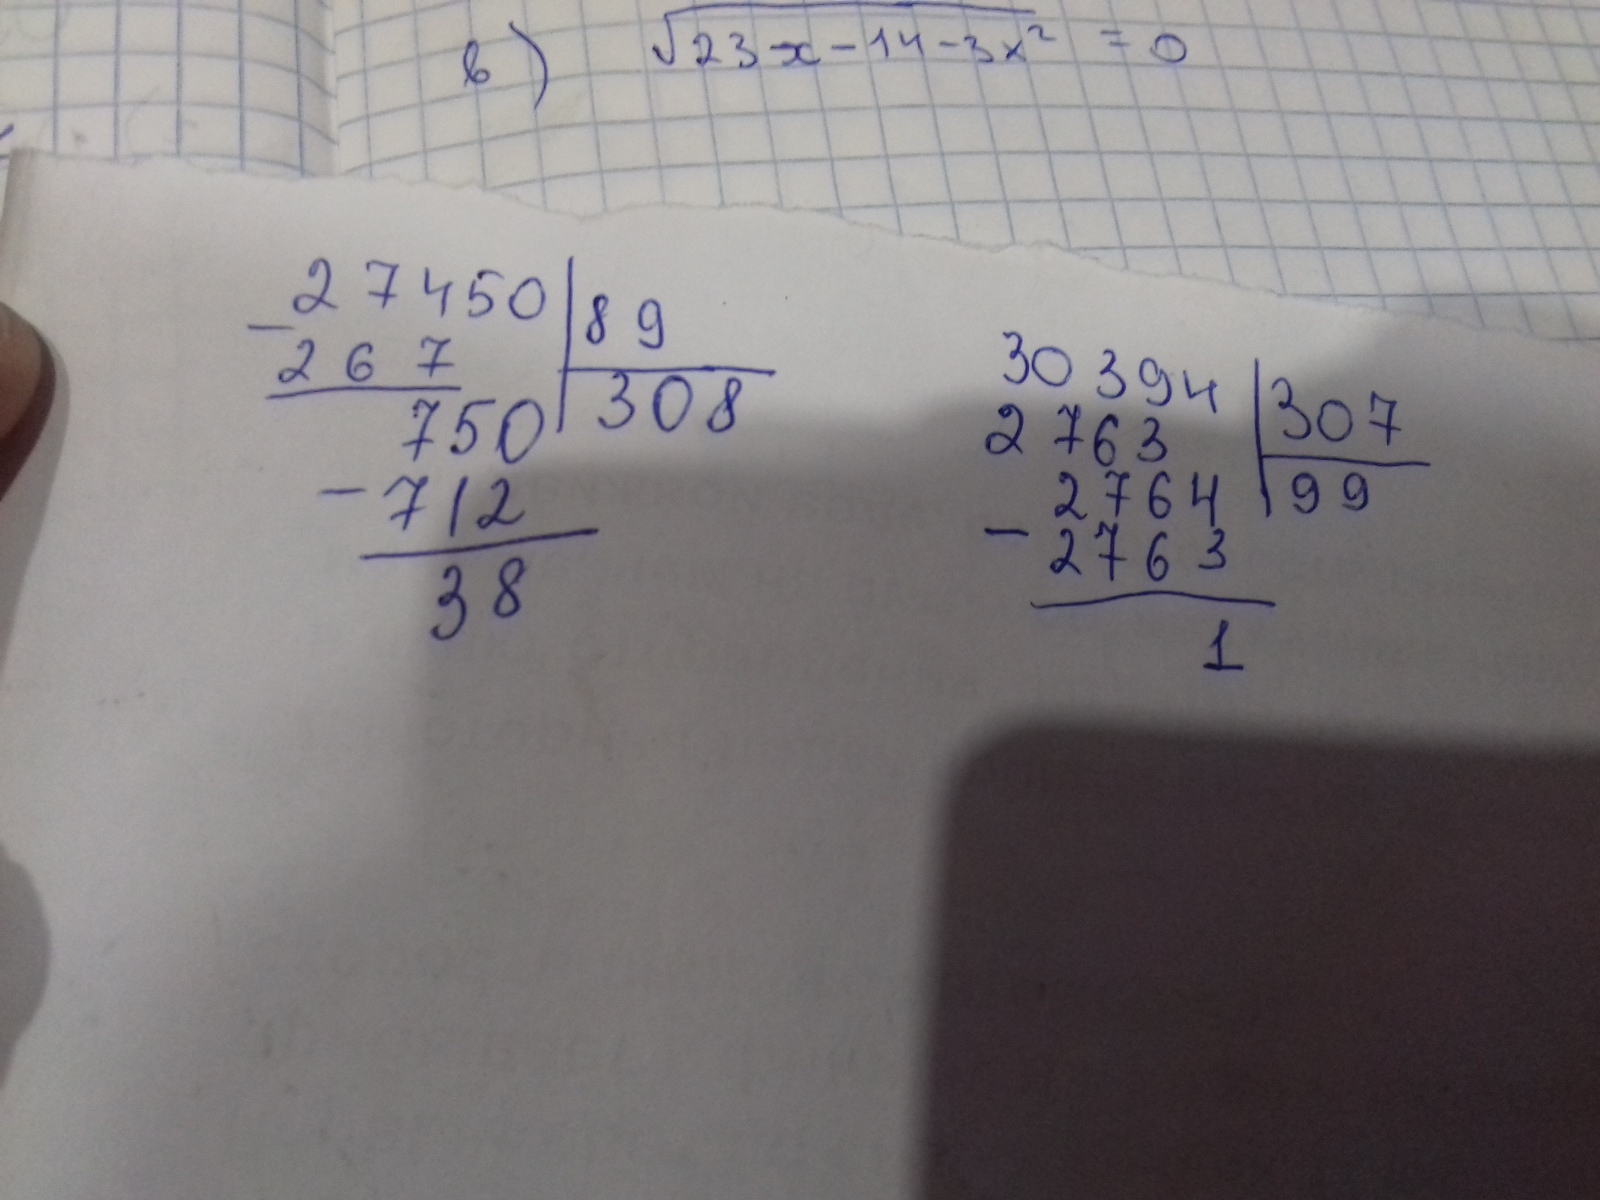 в) √23x-14-3x² = 0
27450 | 89
- 267 | 308
750
- 712
38
30394 | 307
2763 | 99
2764
- 2763
1